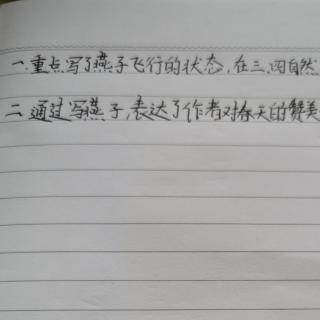 一.重点写了燕子飞行的状态,在三、四自然
二.通过写燕子,表达了作者对春天的赞美